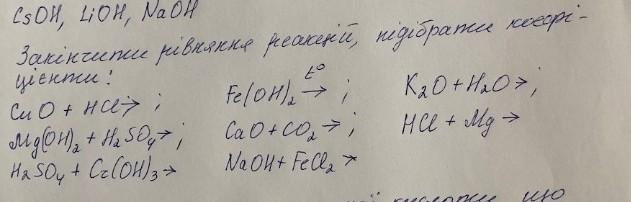 CsOH, LiOH, NaOH
Закінчити рівняння реакцій, підібрати коефі-
цієнти:
CuO + HCl →; Fe(OH)₂ t° →; K₂O + H₂O →;
Mg(OH)₂ + H₂SO₄ →; CaO + CO₂ →; HCl + Mg →
H₂SO₄ + Cr(OH)₃ → NaOH + FeCl₂ →